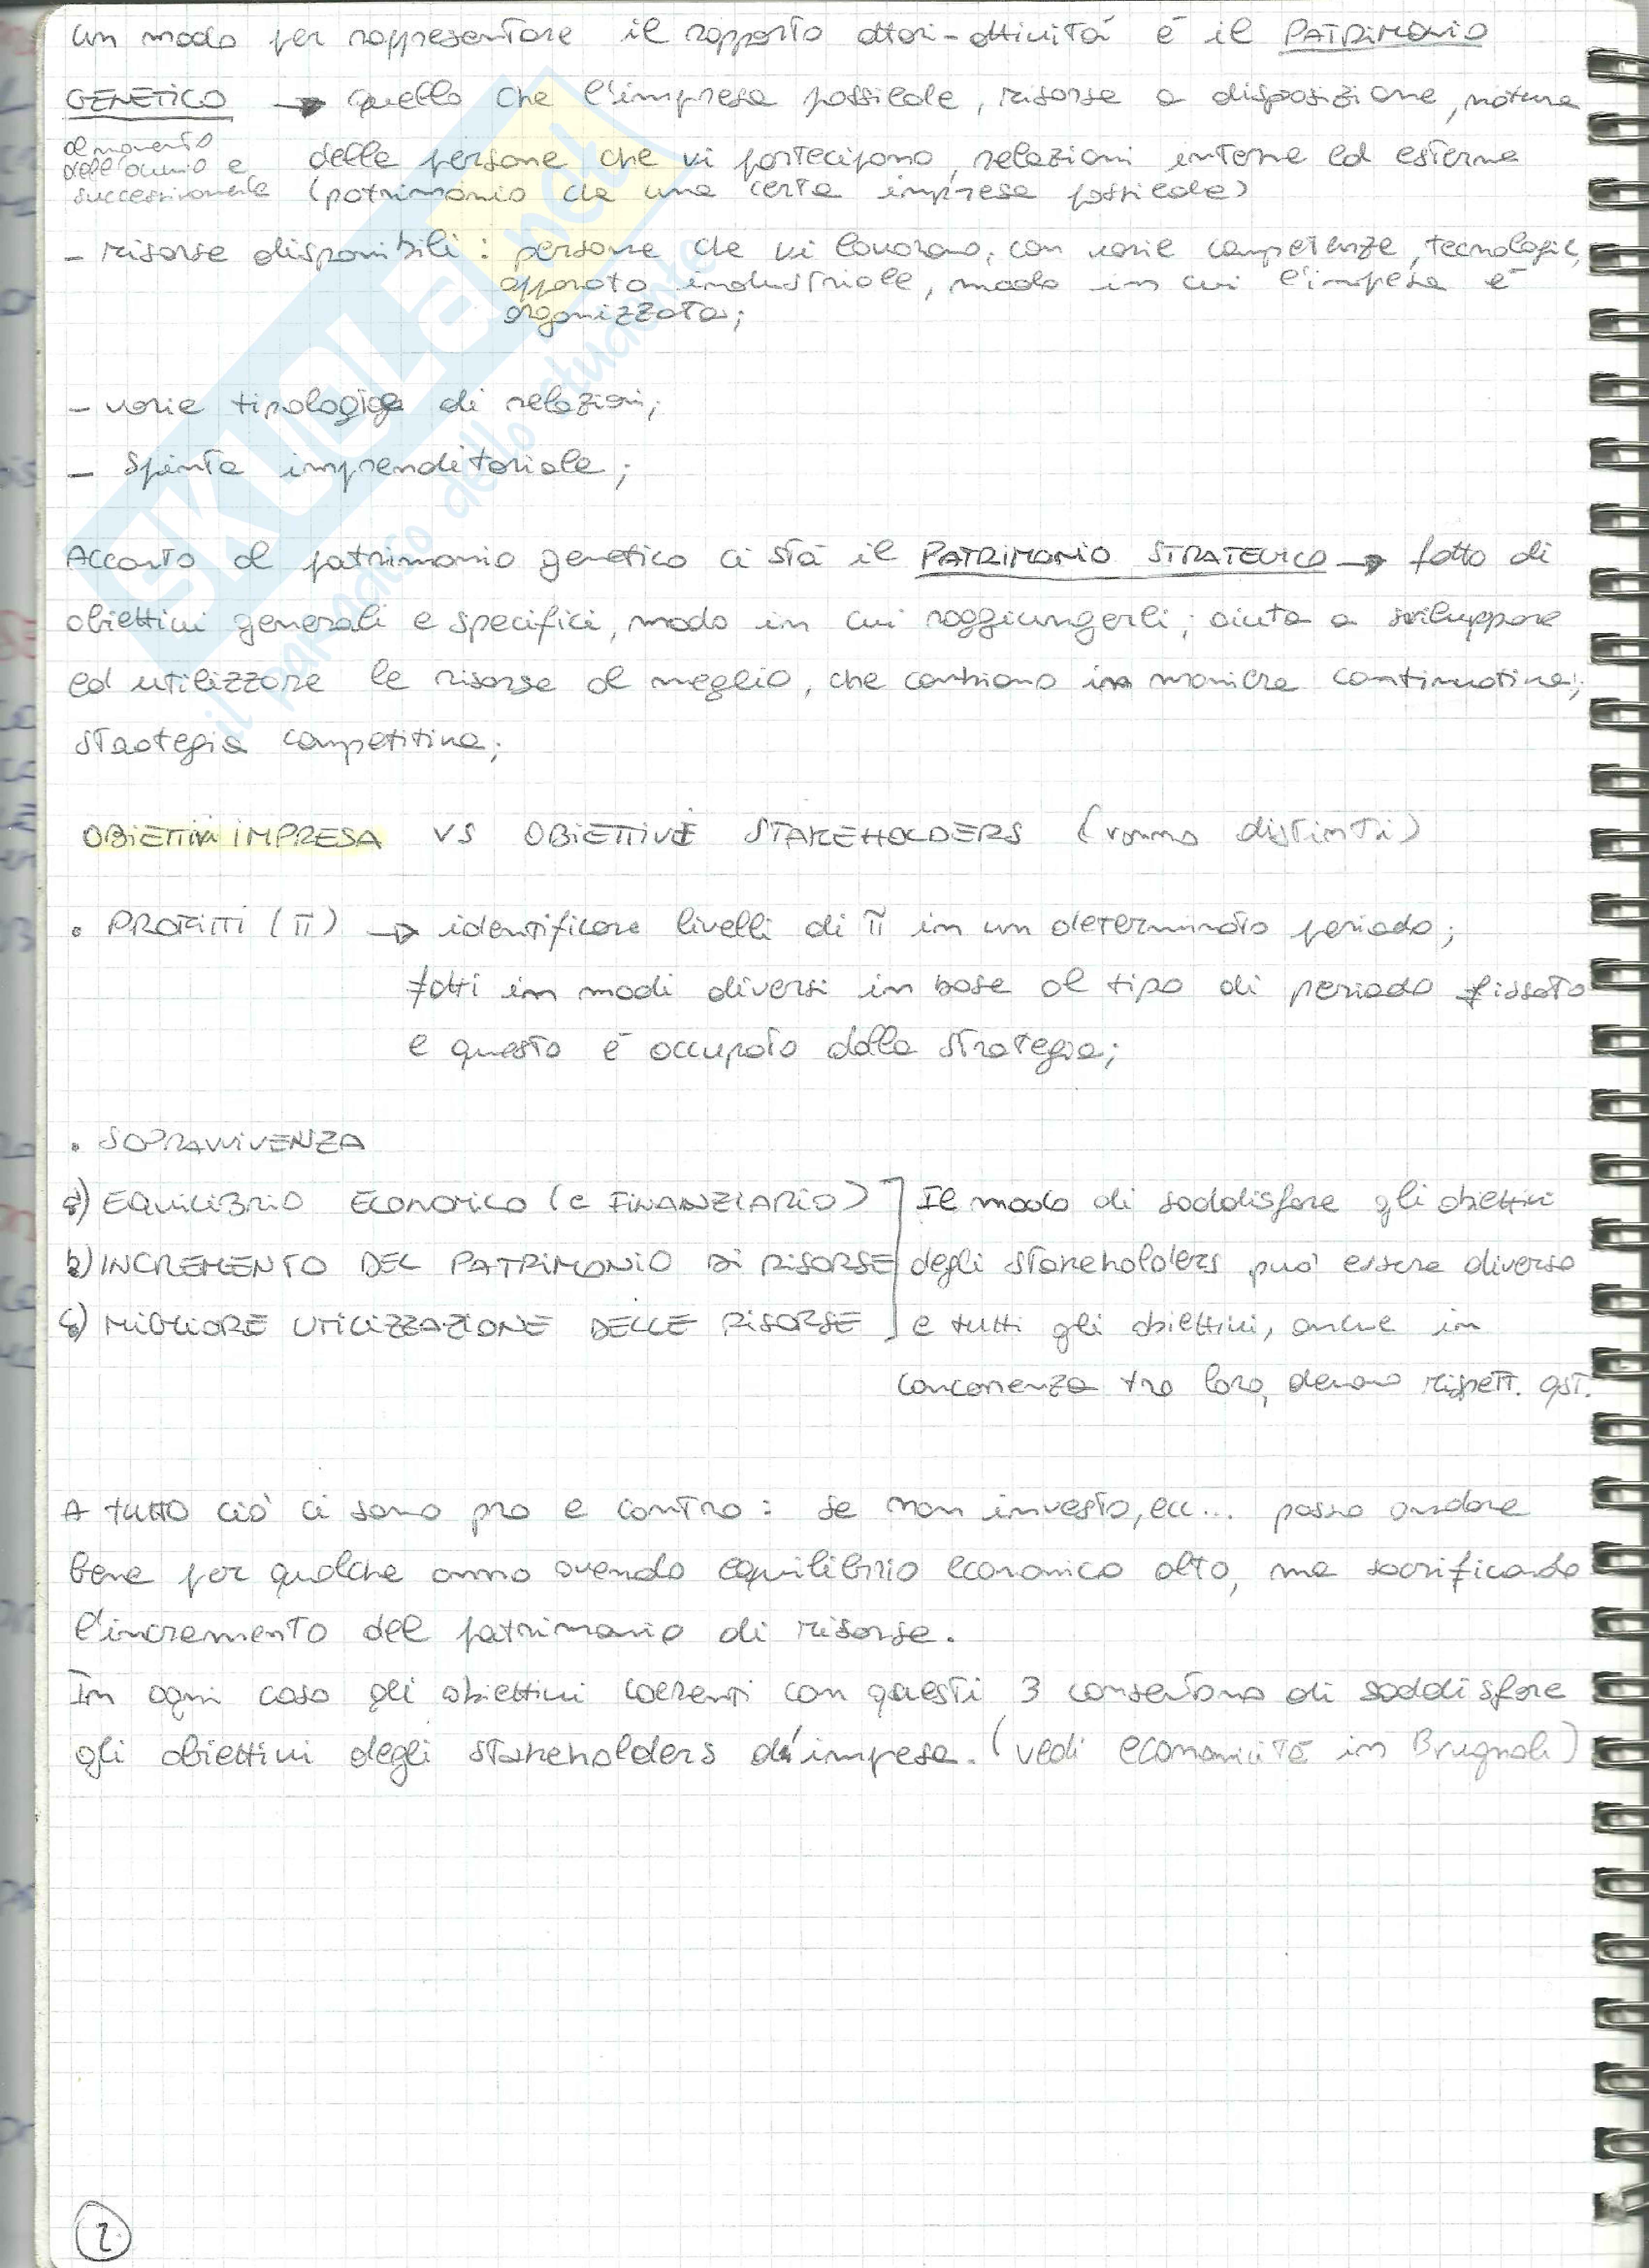 Un modo per rappresentare il rapporto attori-attività è il PATRIMONIO
GENETICO → quello che l'impresa possiede, risorse a disposizione, natura
al momento
dell'avvio e
successivamente
delle persone che vi partecipano, relazioni interne ed esterne
(patrimonio che una certa impresa possiede)
- risorse disponibili: persone che vi lavorano, con varie competenze, tecnologie,
apparato industriale, modo in cui l'impesa è
organizzata;
- varie tipologie di relazioni;
- spinta imprenditoriale;
Accanto al patrimonio genetico ci sta il PATRIMONIO STRATEGICO → fatto di
obiettivi generali e specifici, modo in cui raggiungerli; aiuta a sviluppare
ed utilizzare le risorse al meglio, che cambiano in maniera continuativa;
strategia competitiva;
OBIETTIVI IMPRESA VS OBIETTIVI STAKEHOLDERS (vanno distinti)
• PROFITTI (π) → identificare livelli di π in un determinato periodo;
fatti in modi diversi in base al tipo di periodo fissato
e questo è occupato dalla strategia;
• SOPRAVVIVENZA
a) EQUILIBRIO ECONOMICO (e FINANZIARIO) Il modo di soddisfare gli obiettivi
b) INCREMENTO DEL PATRIMONIO DI RISORSE degli stakeholders può essere diverso
c) MIGLIORE UTILIZZAZIONE DELLE RISORSE e tutti gli obiettivi, anche in
concorrenza tra loro, devono rispett. qst.
A tutto ciò ci sono pro e contro: se non investo, ecc... posso andare
bene per qualche anno avendo equilibrio economico alto, ma sacrificando
l'incremento del patrimonio di risorse.
In ogni caso gli obiettivi coerenti con questi 3 consentono di soddisfare
gli obiettivi degli stakeholders d'impresa. (vedi economicità in Brugnoli)
2
SKUOLA.net
il paradiso dello studente